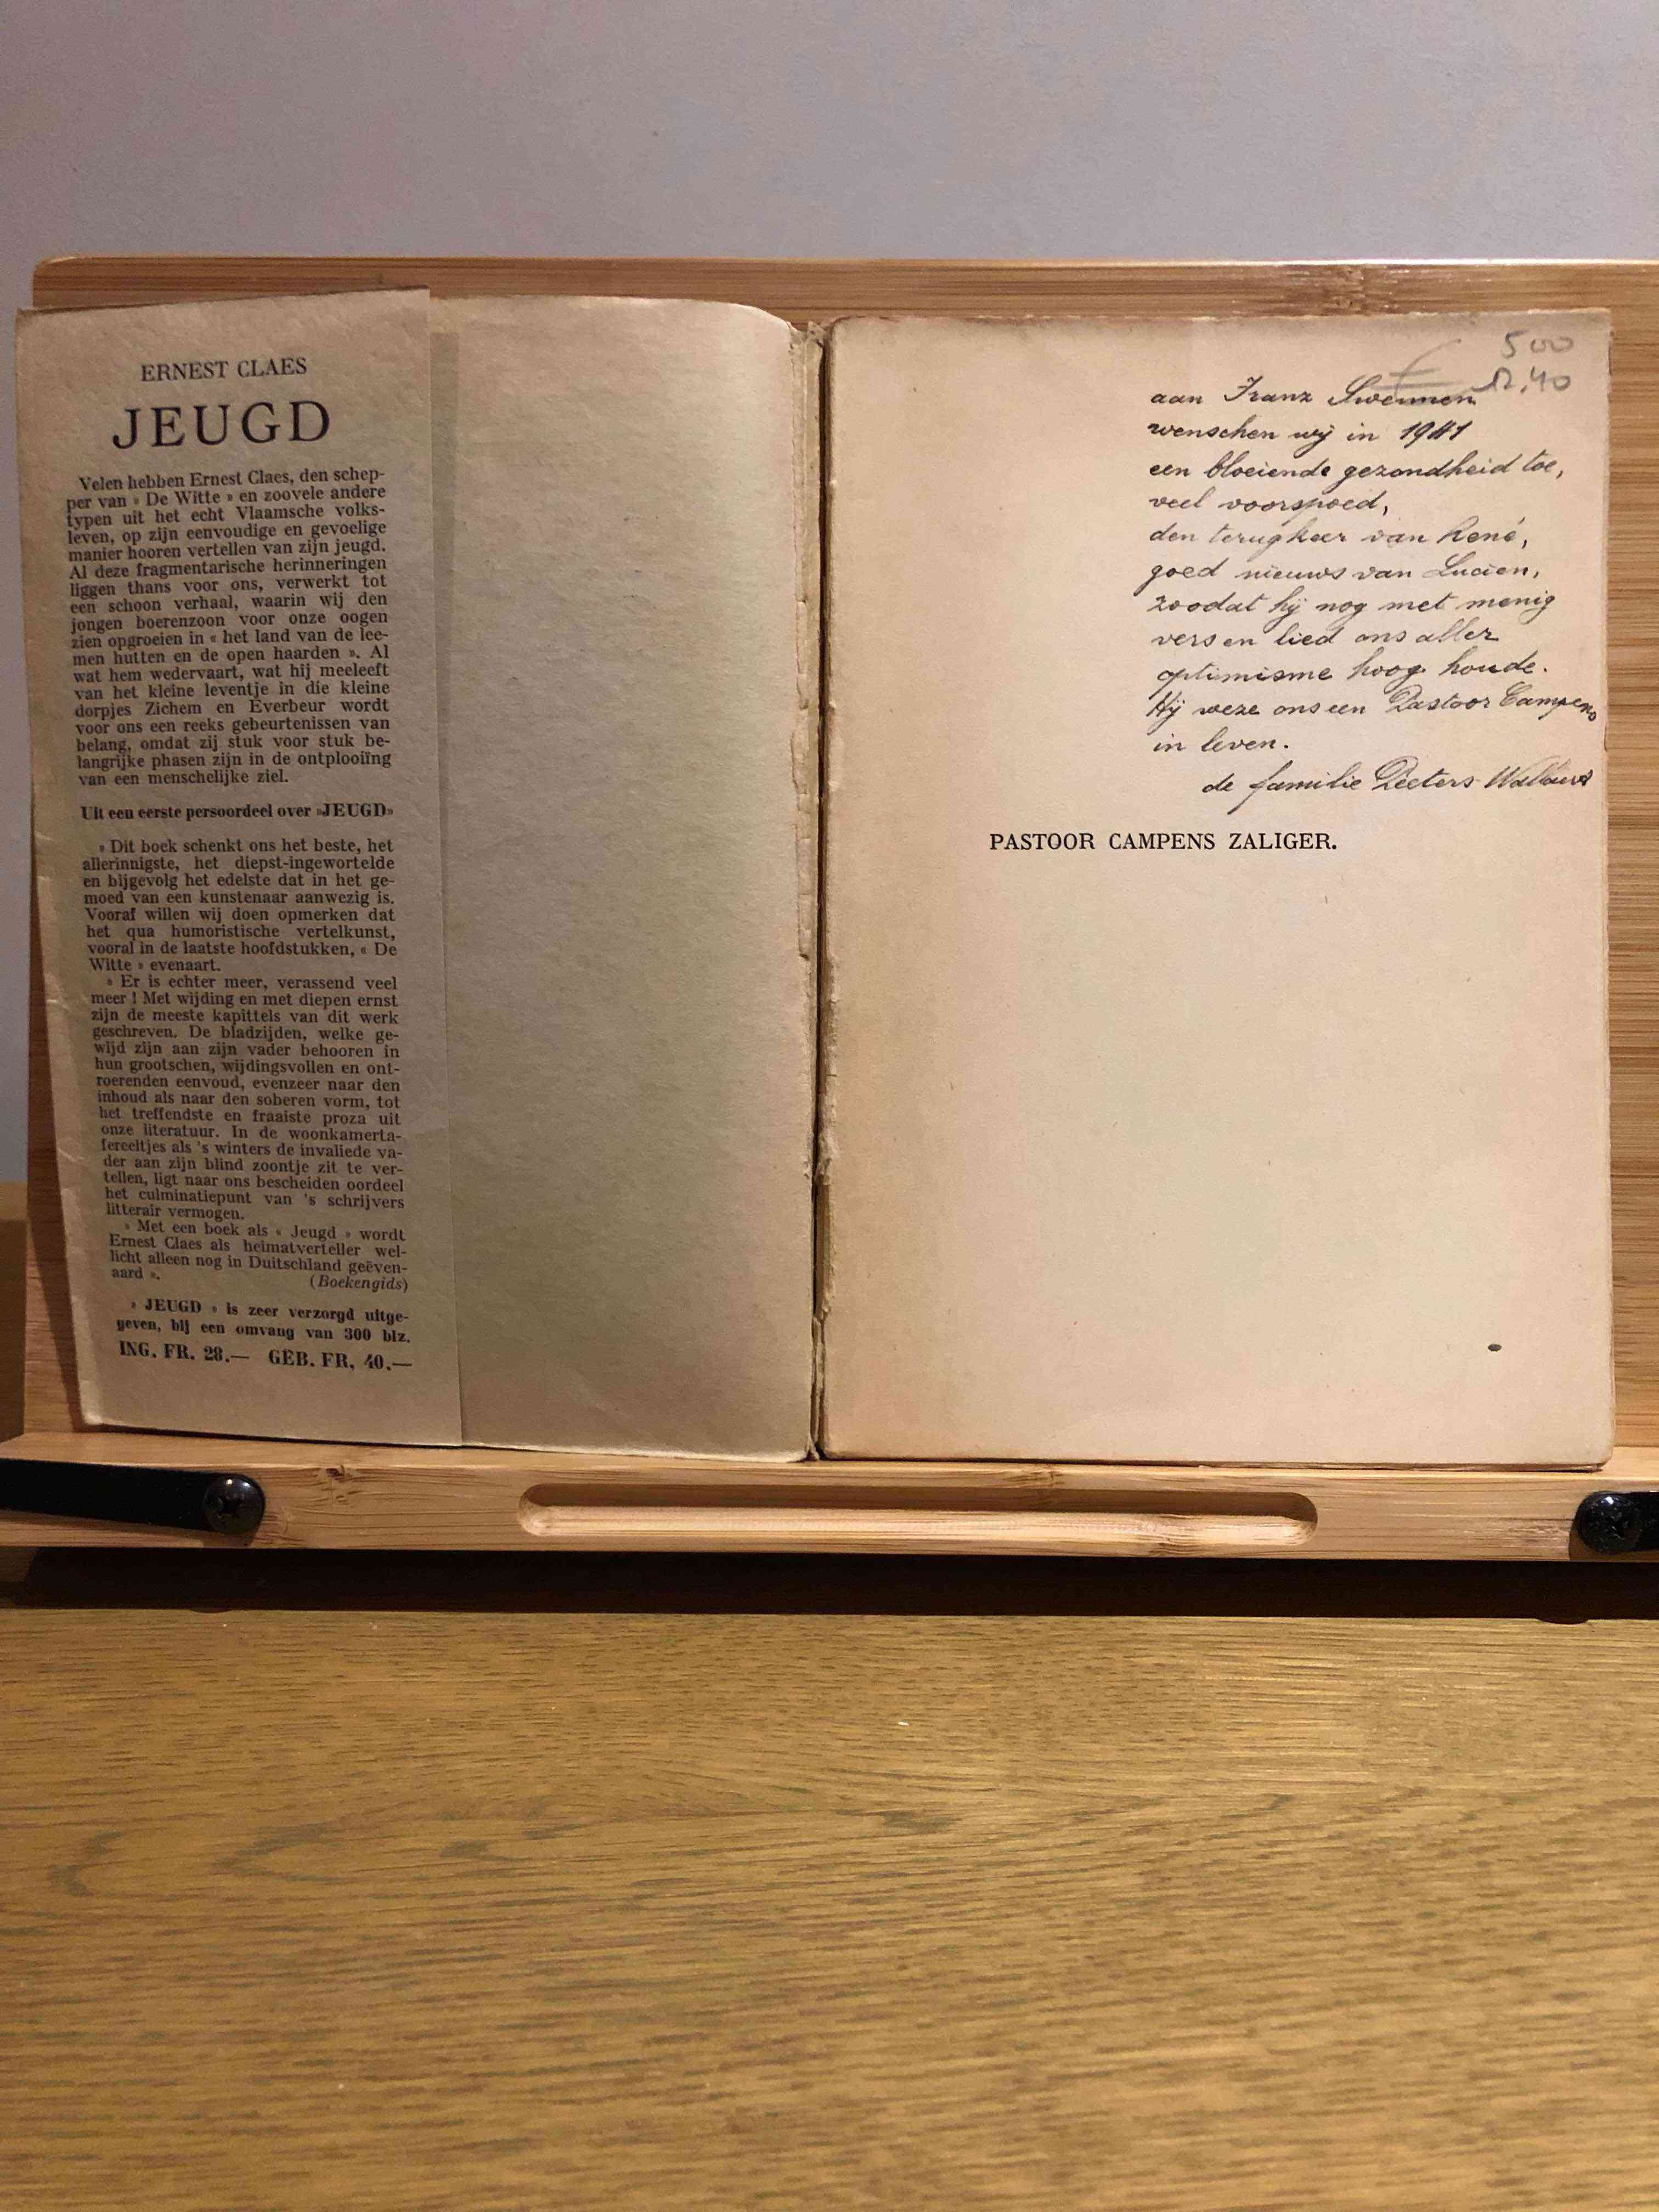 ERNEST CLAES
JEUGD
Velen hebben Ernest Claes, den schep-
per van « De Witte » en zoovele andere
typen uit het echt Vlaamsche volks-
leven, op zijn eenvoudige en gevoelige
manier hooren vertellen van zijn jeugd.
Al deze fragmentarische herinneringen
liggen thans voor ons, verwerkt tot
een schoon verhaal, waarin wij den
jongen boerenzoon voor onze oogen
zien opgroeien in « het land van de lee-
men hutten en de open haarden ». Al
wat hem wedervaart, wat hij meeleeft
van het kleine leventje in die kleine
dorpjes Zichem en Everbeur wordt
voor ons een reeks gebeurtenissen van
belang, omdat zij stuk voor stuk be-
langrijke phasen zijn in de ontplooiïng
van een menschelijke ziel.
Uit een eerste persoordeel over »JEUGD»
» Dit boek schenkt ons het beste, het
allerinnigste, het diepst-ingewortelde
en bijgevolg het edelste dat in het ge-
moed van een kunstenaar aanwezig is.
Vooraf willen wij doen opmerken dat
het qua humoristische vertelkunst,
vooral in de laatste hoofdstukken, « De
Witte » evenaart.
» Er is echter meer, verassend veel
meer ! Met wijding en met diepen ernst
zijn de meeste kapittels van dit werk
geschreven. De bladzijden, welke ge-
wijd zijn aan zijn vader behooren in
hun grootschen, wijdingsvollen en ont-
roerenden eenvoud, evenzeer naar den
inhoud als naar den soberen vorm, tot
het treffendste en fraaiste proza uit
onze literatuur. In de woonkamerta-
fereeltjes als 's winters de invaliede va-
der aan zijn blind zoontje zit te ver-
tellen, ligt naar ons bescheiden oordeel
het culminatiepunt van 's schrijvers
litterair vermogen.
» Met een boek als « Jeugd » wordt
Ernest Claes als heimatverteller wel-
licht alleen nog in Duitschland geëven-
aard ».
(Boekengids)
» JEUGD » is zeer verzorgd uitge-
geven, bij een omvang van 300 blz.
ING. FR. 28.— GEB. FR, 40.—
500
12,40
aan Franz Swennen
wenschen wij in 1941
een bloeiende gezondheid toe,
veel voorspoed,
den terugkeer van René,
goed nieuws van Lucien,
zoodat hij nog met menig
vers en lied ons aller
optimisme hoog houde.
Hij weze ons een Pastoor Campens
in leven.
de familie Peeters
PASTOOR CAMPENS ZALIGER.